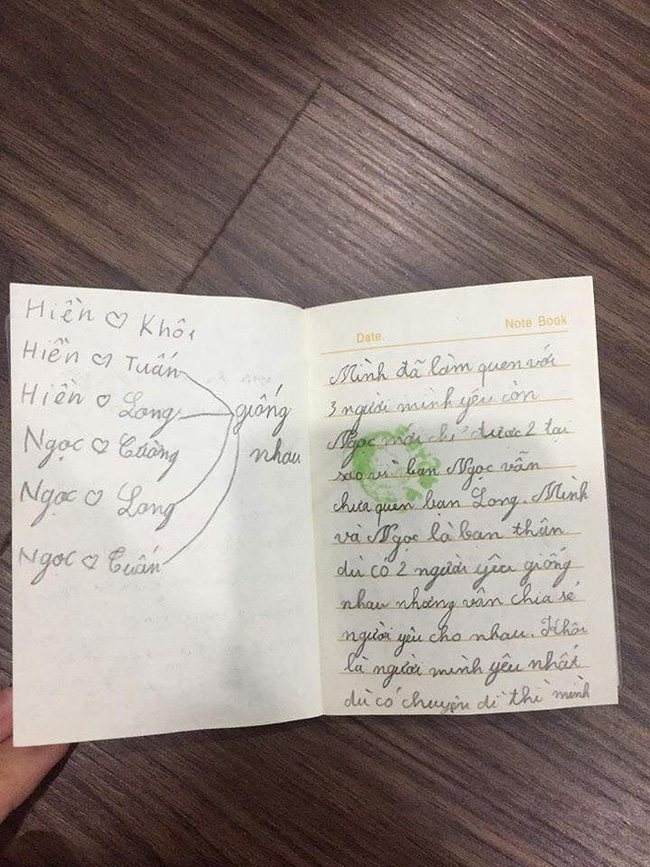 Hiền ♡ Khôi
Hiền ♡ Tuấn
Hiền ♡ Long
Ngọc ♡ Cường
Ngọc ♡ Long
Ngọc ♡ Tuấn
giống
nhau
Date.
Note Book
Mình đã làm quen với
3 người mình yêu còn
Ngọc mới chỉ được 2 tại
sao vì bạn Ngọc vẫn
chưa quen bạn Long. Mình
và Ngọc là bạn thân
dù có 2 người yêu giống
nhau nhưng vẫn chia sẻ
người yêu cho nhau. Khôi
là người mình yêu nhất
dù có chuyện dì thì mình